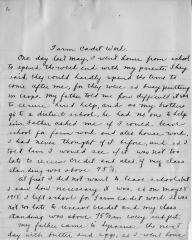 Farm Cadet Work.
One day last May, I went home from school
to spend the week end with my parents. They
said, they could hardly spend the time to
come after me, for they were so busy putting
in crops. My father told me how difficult it was
to secure hired help, and as my brothers
go to a district school, he had no one to help
him. Father asked me if I would leave
school for farm work and also house work.
I had never thought of it before, and so I
told him I would see, if it was not too
late to secure credit and also, if my class
standing was above 75%.
At first I did not want to leave school but
I saw how necessary it was, so on May
1918 I left school for Farm Cadet work. It was
not too late to secure credit and my class
standing was above 75% in every subject.
My father came to Syracuse the next
day with butter and eggs, so I went home